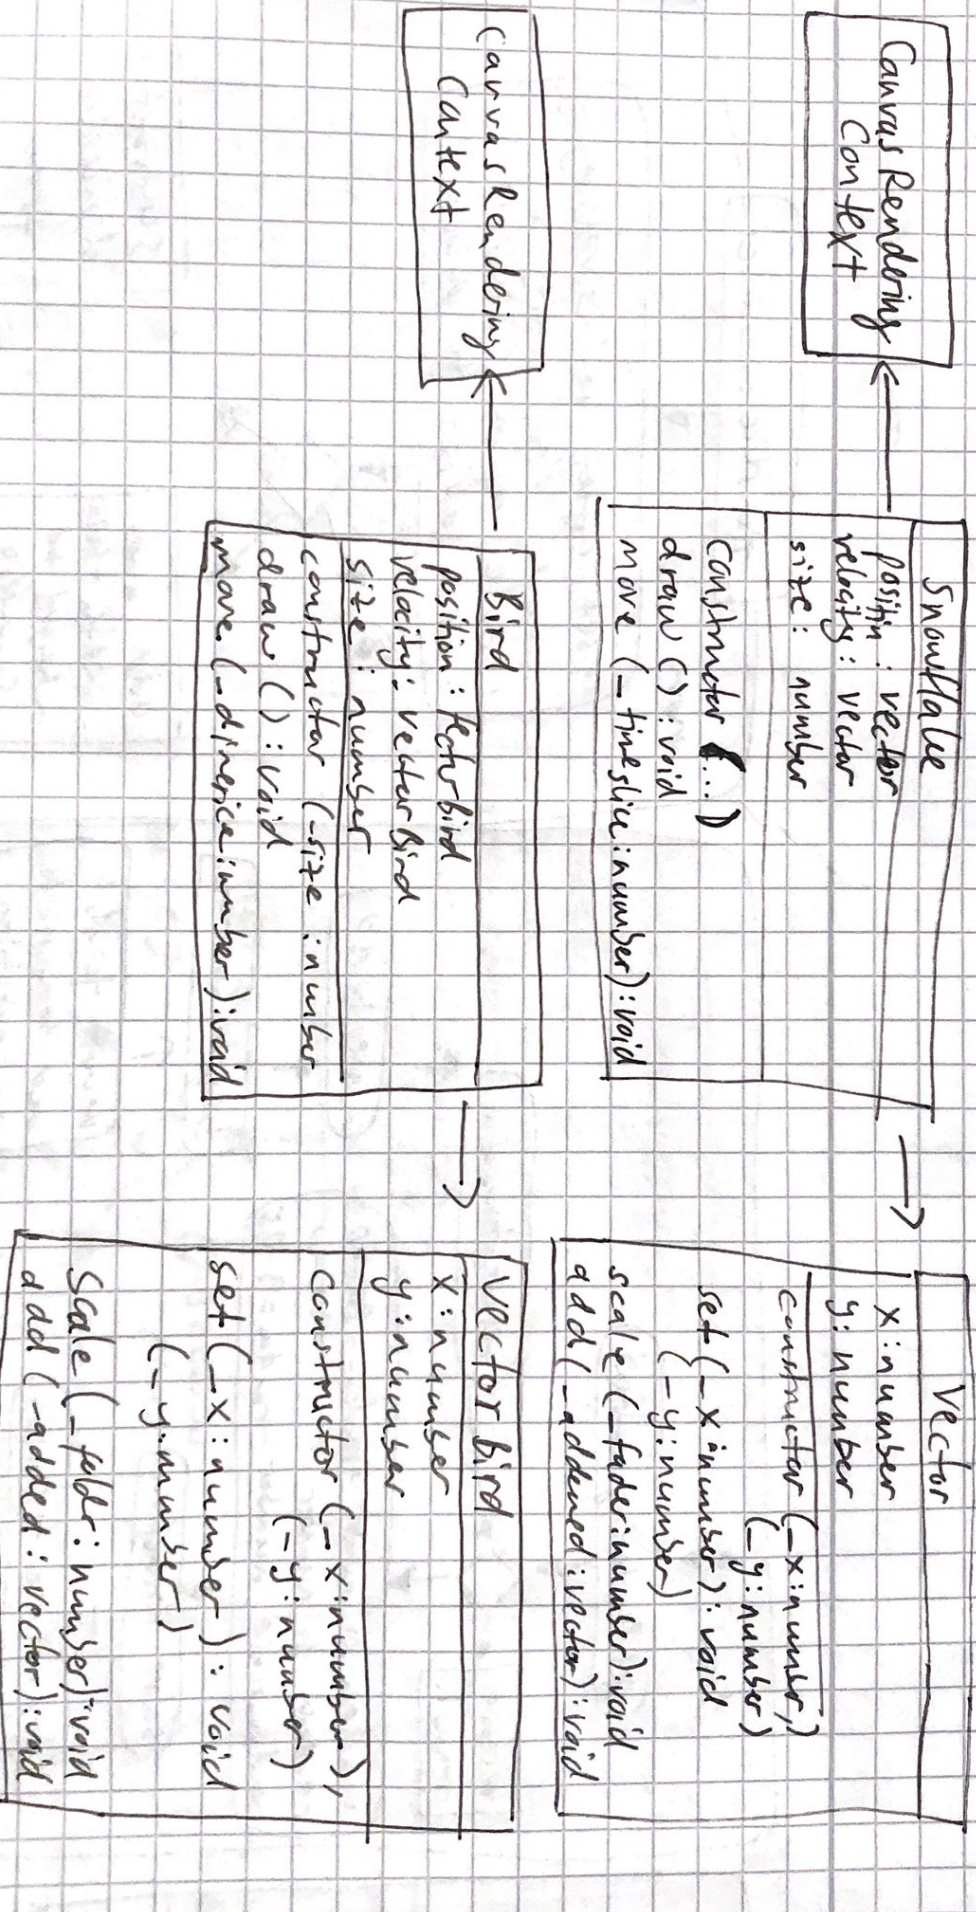 Canvas Rendering
Context
Snowflake
positin : vector
velocity : vector
size : number
constructor (...)
draw () : void
move (_timeslice:number) : void
Vector
x : number
y : number
constructor (_x:number,)
(_y:number)
set (_x:number) : void
(_y:number)
scale (_fader:number) : void
add (_addened : vector) : void
Canvas Rendering
Context
Bird
position : vectorbird
velocity : vectorBird
size : number
constructor (_size : number
draw () : void
move (_dimerice:number) : void
Vectorbird
x : number
y : number
constructor (_x:number),
(_y:number)
set (_x : number) : void
(_y:number)
Scale (_foldr : number) : void
add (_added : vector) : void